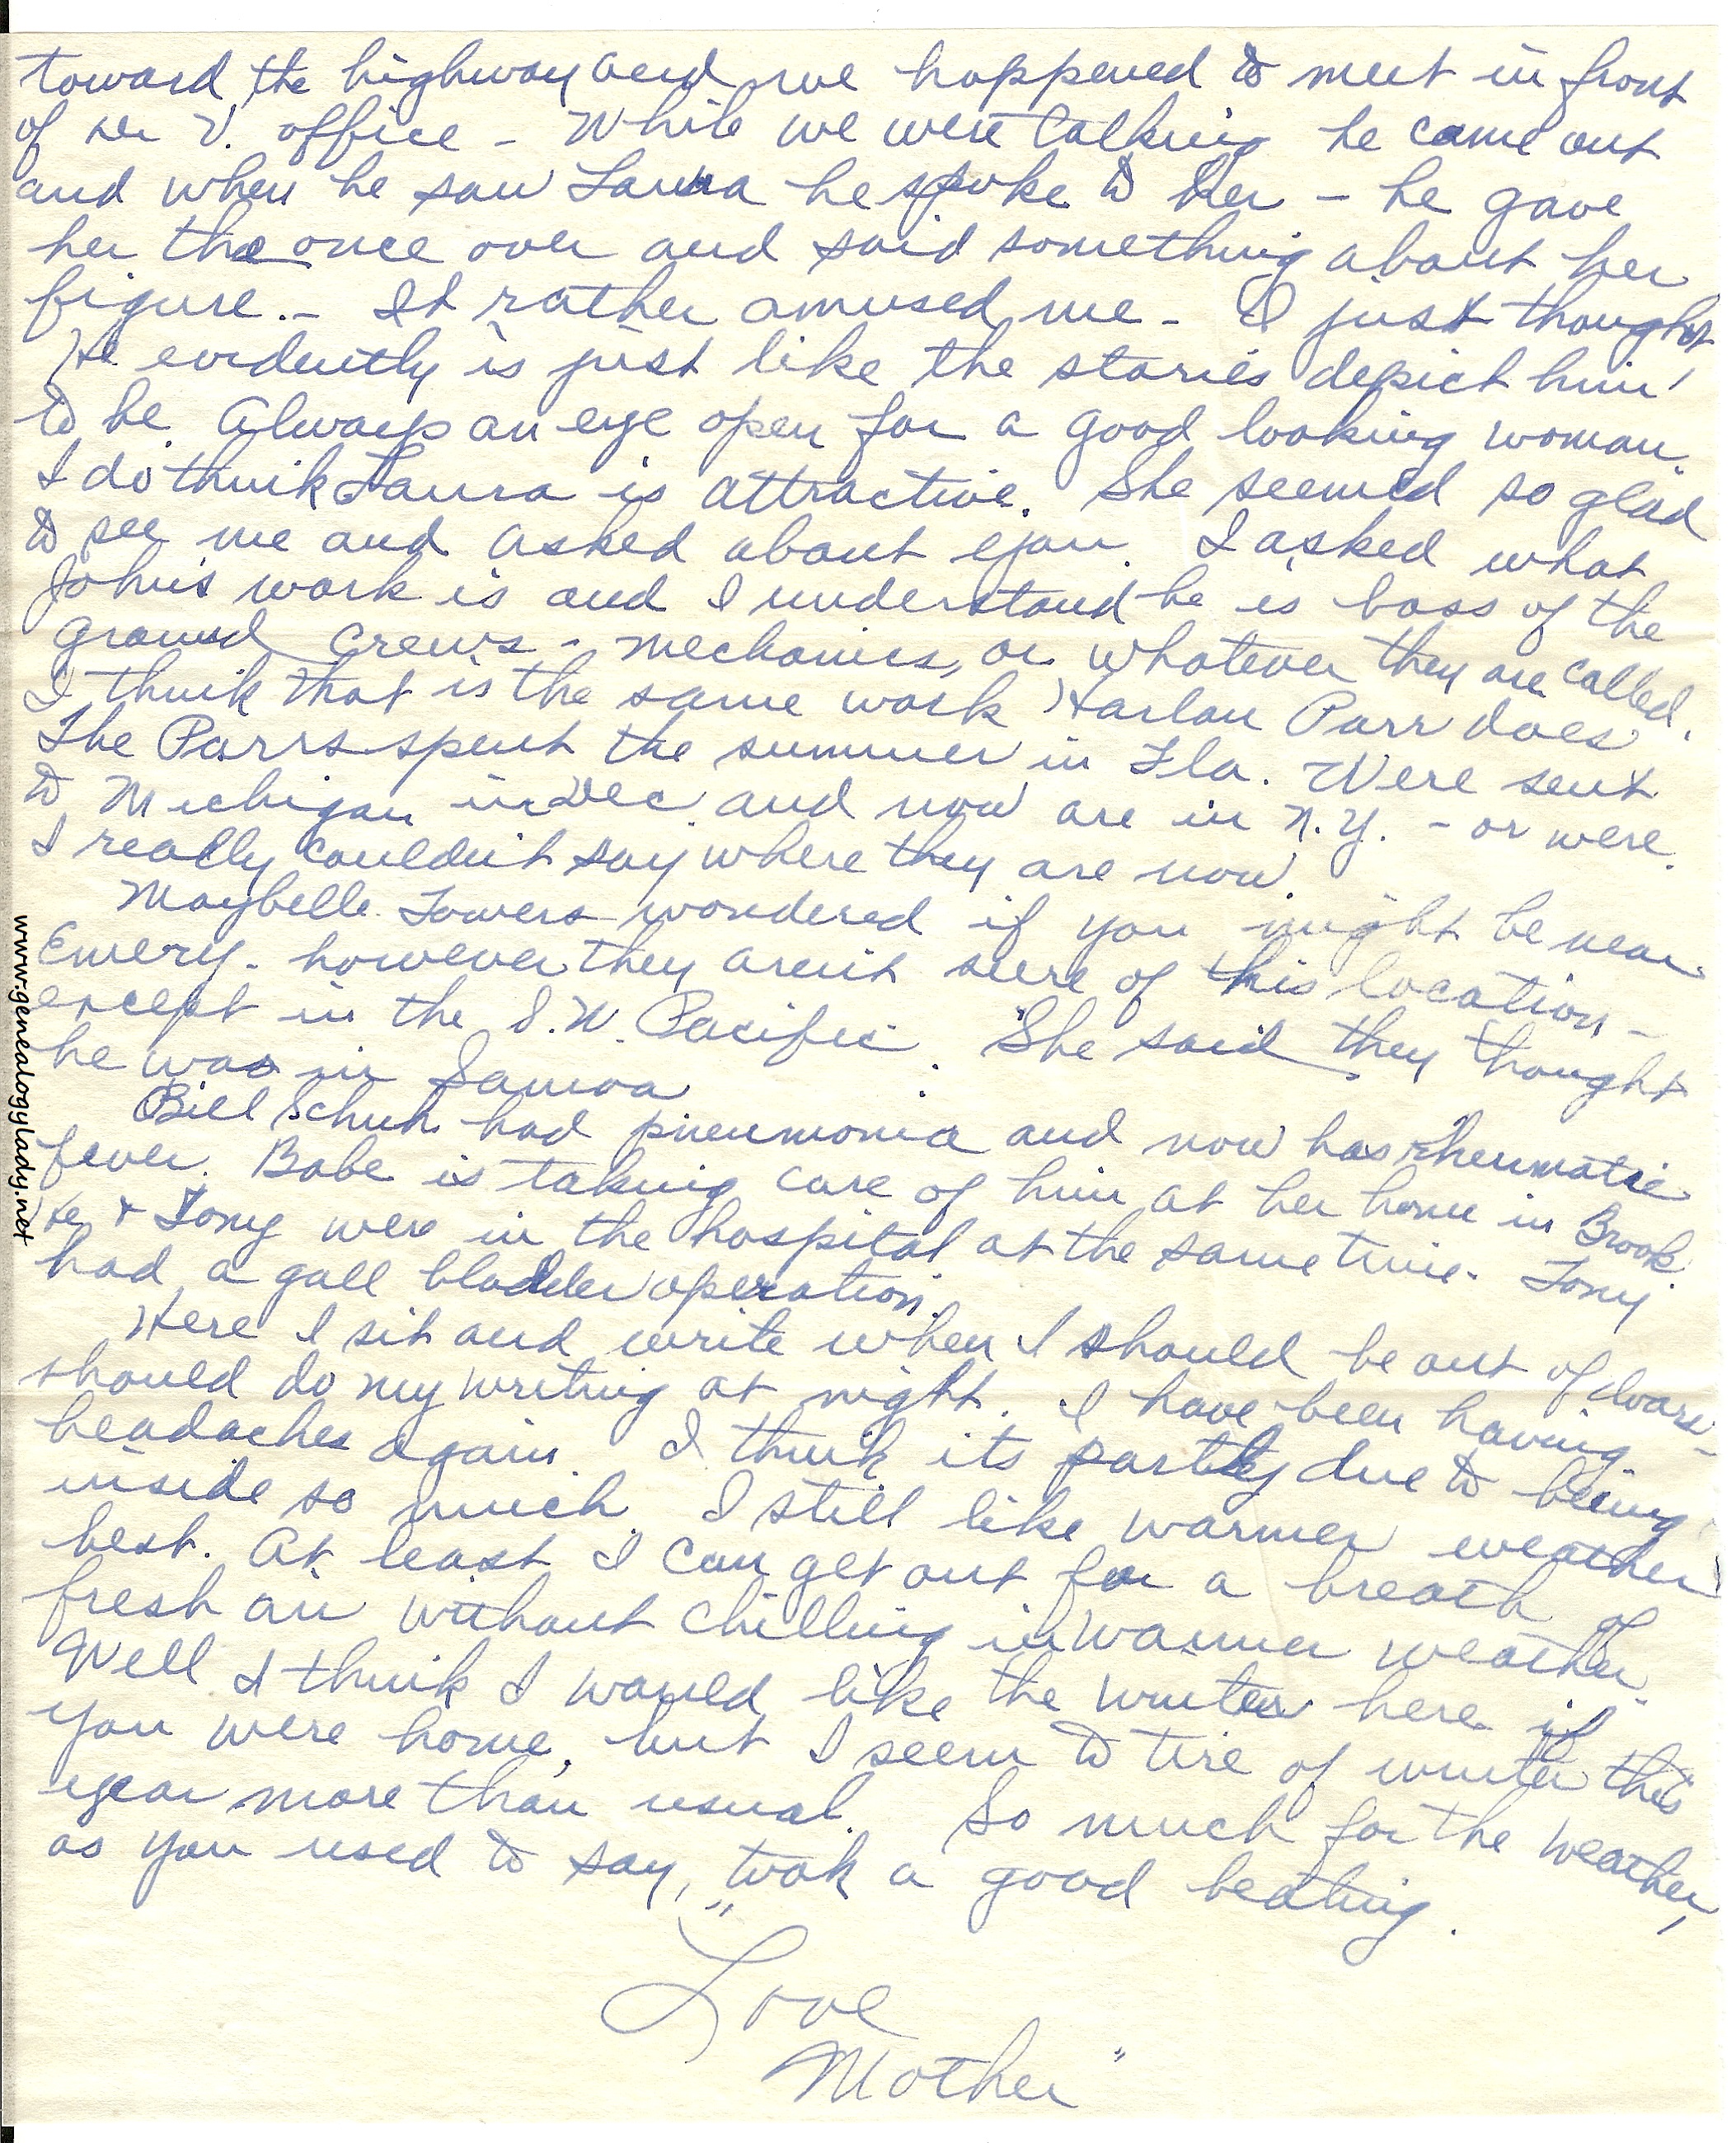 toward the highway and we happened to meet in front
of Dr V. office - While we were talking he came out
and when he saw Laura he spoke to her - he gave
her the once over and said something about her
figure. - It rather amused me - I just thought
He evidently is just like the stories depict him
to be. Always an eye open for a good looking woman.
I do think Laura is attractive. She seemed so glad
to see me and asked about you. I asked what
John's work is and I understand he is boss of the
ground crews - mechanics, or whatever they are called.
I think that is the same work Harlan Parr does.
The Parrs spent the summer in Fla. Were sent
to Michigan in Dec. and now are in N.Y. - or were.
I really couldn't say where they are now.
Maybelle Towers wondered if you might be near
Emery - however they aren't sure of his location -
except in the S.W. Pacific. She said they thought
he was in Samoa
Bill Schuh had pneumonia and now has rheumatic
fever. Babe is taking care of him at her home in Brook.
He & Tony were in the hospital at the same time. Tony
had a gall bladder operation.
Here I sit and write when I should be out of doors -
should do my writing at night. I have been having
headaches again. I think its partly due to being
inside so much. I still like warmer weather
best. At least I can get out for a breath of
fresh air without chilling in warmer weather.
Well I think I would like the winter here if
you were home, but I seem to tire of winter this
year more than usual. So much for the weather,
as you used to say, "took a good beating.
Love
Mother"
www.genealogylady.net